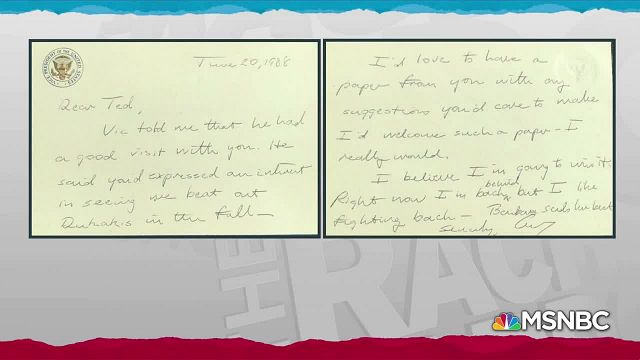 VICE PRESIDENT OF THE UNITED STATES
June 20, 1988
Dear Ted,
Vic told me that he had
a good visit with you. He
said you'd expressed an interest
in seeing me beat out
Dukakis in the fall—
I'd love to have a
paper from you with any
suggestions you'd care to make
I'd welcome such a paper - I
really would.
I believe I'm going to win it.
Right now I'm behind but I like
fighting back - Barbara sends her best
Sincerely,
THE
RACH
MSNBC